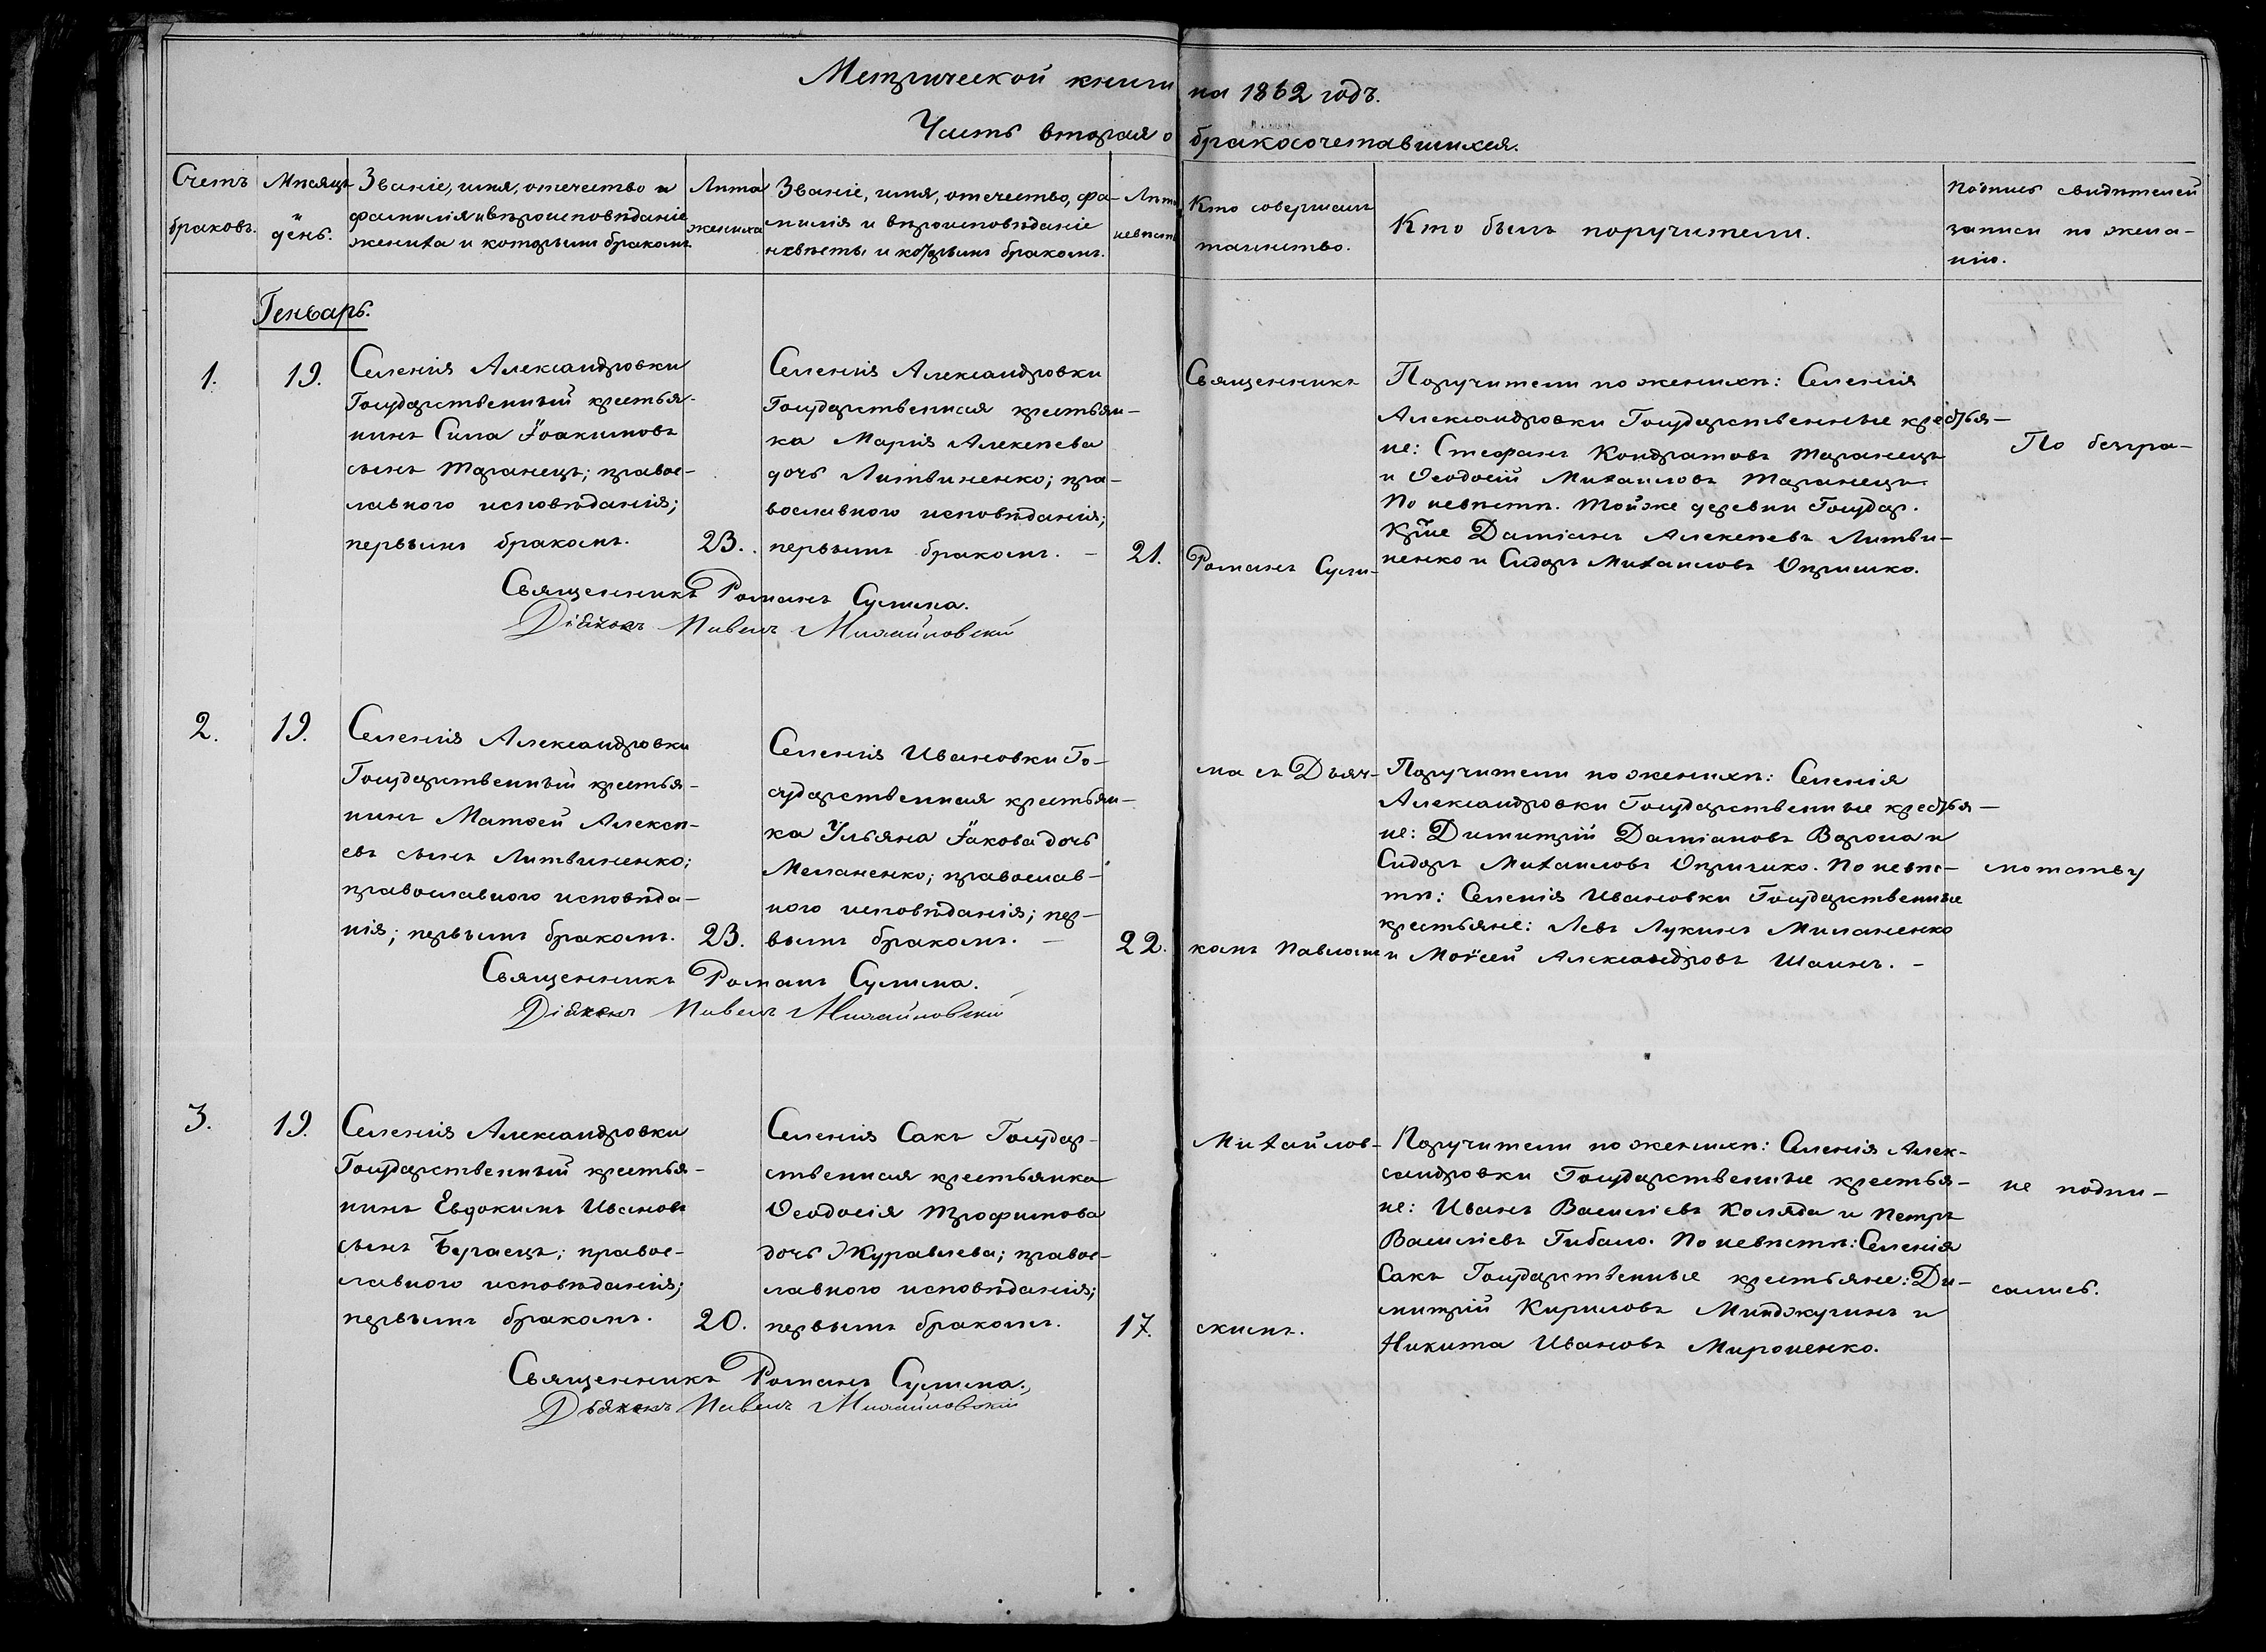 Метрической книги на 1862 годъ.
Часть вторая о бракосочетавшихся.
Счетъ браковъ.
Мѣсяцъ и день.
Званіе, имя, отечество и
фамилія и вѣроисповѣданіе
жениха и которымъ бракомъ
Лѣта
жениха
Званіе, имя, отечество, фа-
милія и вѣроисповѣданіе
невѣсты и которымъ бракомъ.
Лѣта
невѣсты
Кто совершалъ
таинство.
Кто былъ поручители.
Подпись свидѣтелей
записи по жела-
нію.
Генварь.
1.
19.
Селенія Александровки
Государственный крестья-
нинъ Сила Іоакимовъ
сынъ Таранецъ; правос-
лавного исповѣданія;
первымъ бракомъ.
23.
Селенія Александровки
Государственная крестьян-
ка Марія Алексѣева
дочь Литвиненко; пра-
вославного исповѣданія;
первымъ бракомъ. -
21.
Священникъ
Романъ Сули-
Поручители по женихѣ: Селенія
Александровки Государственные крестья-
не: Стефанъ Кондратовъ Таранецъ
и Ѳеодосій Михаиловъ Таранецъ
По невѣстѣ. Тойже деревни Государ.
Кр̃не Даміанъ Алексѣевъ Литви-
ненко и Сидоръ Михаиловъ Опришко.
По безгра-
Священникъ Романъ Сулима.
Діяконъ Павелъ Михайловскій
2.
19.
Селенія Александровки
Государственный крестья-
нинъ Матѳей Алексѣ-
евъ сынъ Литвиненко;
православного исповѣда-
нія; первымъ бракомъ.
23.
Селенія Ивановки Го-
сударственная крестьян-
ка Ульяна Іакова дочь
Меланенко; православ-
ного исповѣданія; пер-
вымъ бракомъ. -
22.
ма съ Дьяч-
комъ Павломъ
Поручители по женихѣ: Селенія
Александровки Государственные крестья-
не: Димитрій Даміановъ Ворона и
Сидоръ Михаиловъ Опришко. По невѣ-
стѣ: Селенія Ивановки Государственные
крестьяне: Левъ Лукинъ Миланенко
и Моѵсей Александровъ Шаинъ. -
мотству
Священникъ Романъ Сулима.
Діяконъ Павелъ Михайловскій
3.
19.
Селенія Александровки
Государственный крестья-
нинъ Евдокимъ Ивановъ
сынъ Бугаецъ; правос-
лавного исповѣданія;
первымъ бракомъ.
20.
Селенія Сакъ Государ-
ственная крестьянка
Ѳеодосія Трофимова
дочь Журавлева; правос-
лавного исповѣданія;
первымъ бракомъ.
17.
Михайлов-
скимъ.
Поручители по женихѣ: Селенія Алек-
сандровки Государственные крестья-
не: Иванъ Василіевъ Коляда и Петръ
Василіевъ Гибало. По невѣстѣ: Селенія
Сакъ Государственные крестьяне: Ди-
митрій Кириловъ Минджулинъ и
Никита Ивановъ Мироненко.
не подпи-
сались.
Священникъ Романъ Сулима.
Дьяконъ Павелъ Михайловскій